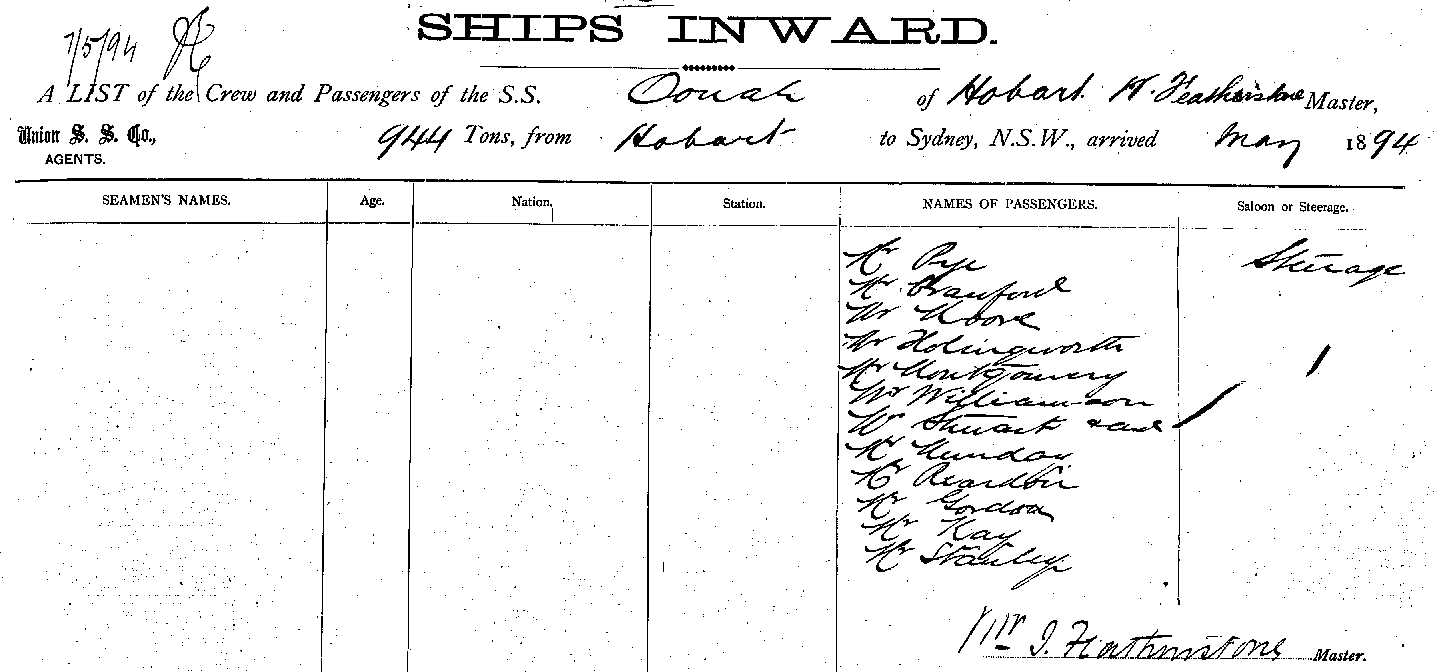 SHIPS INWARD.
7/5/94
A LIST of the Crew and Passengers of the S.S. Oonah of Hobart W. Featherstone Master,
Union S. S. Co., 944 Tons, from Hobart to Sydney, N.S.W., arrived May 1894
AGENTS.
SEAMEN'S NAMES. Age. Nation. Station. NAMES OF PASSENGERS. Saloon or Steerage.
Mr Pye Steerage
Mr Cranford
Mr Moore
Mr Holingworth
Mr Montgomery
Mr Williamson
Mr Stewart
Mr Munday
Mr Reardon
Mr Gordon
Mr Kay
Mr Stanley
Wm J. Featherstone Master.